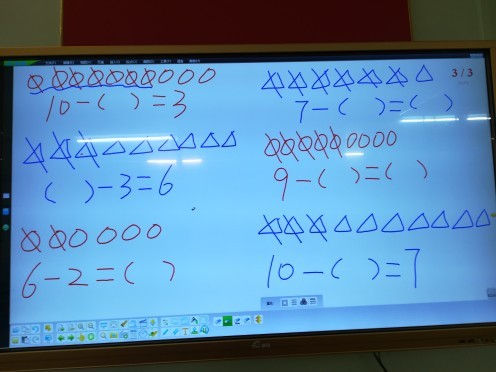 3/3
10-( )=3
7-( )=( )
( )-3=6
9-( )=( )
6-2=( )
10-( )=7